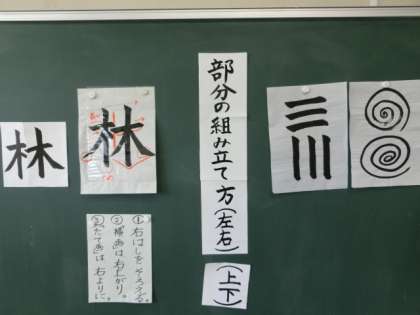 林
林
部分の組み立て方(左右)
(上下)
三
①右はしをそろえる。
②横画は右上がり。
③「たて画」は右よりに。